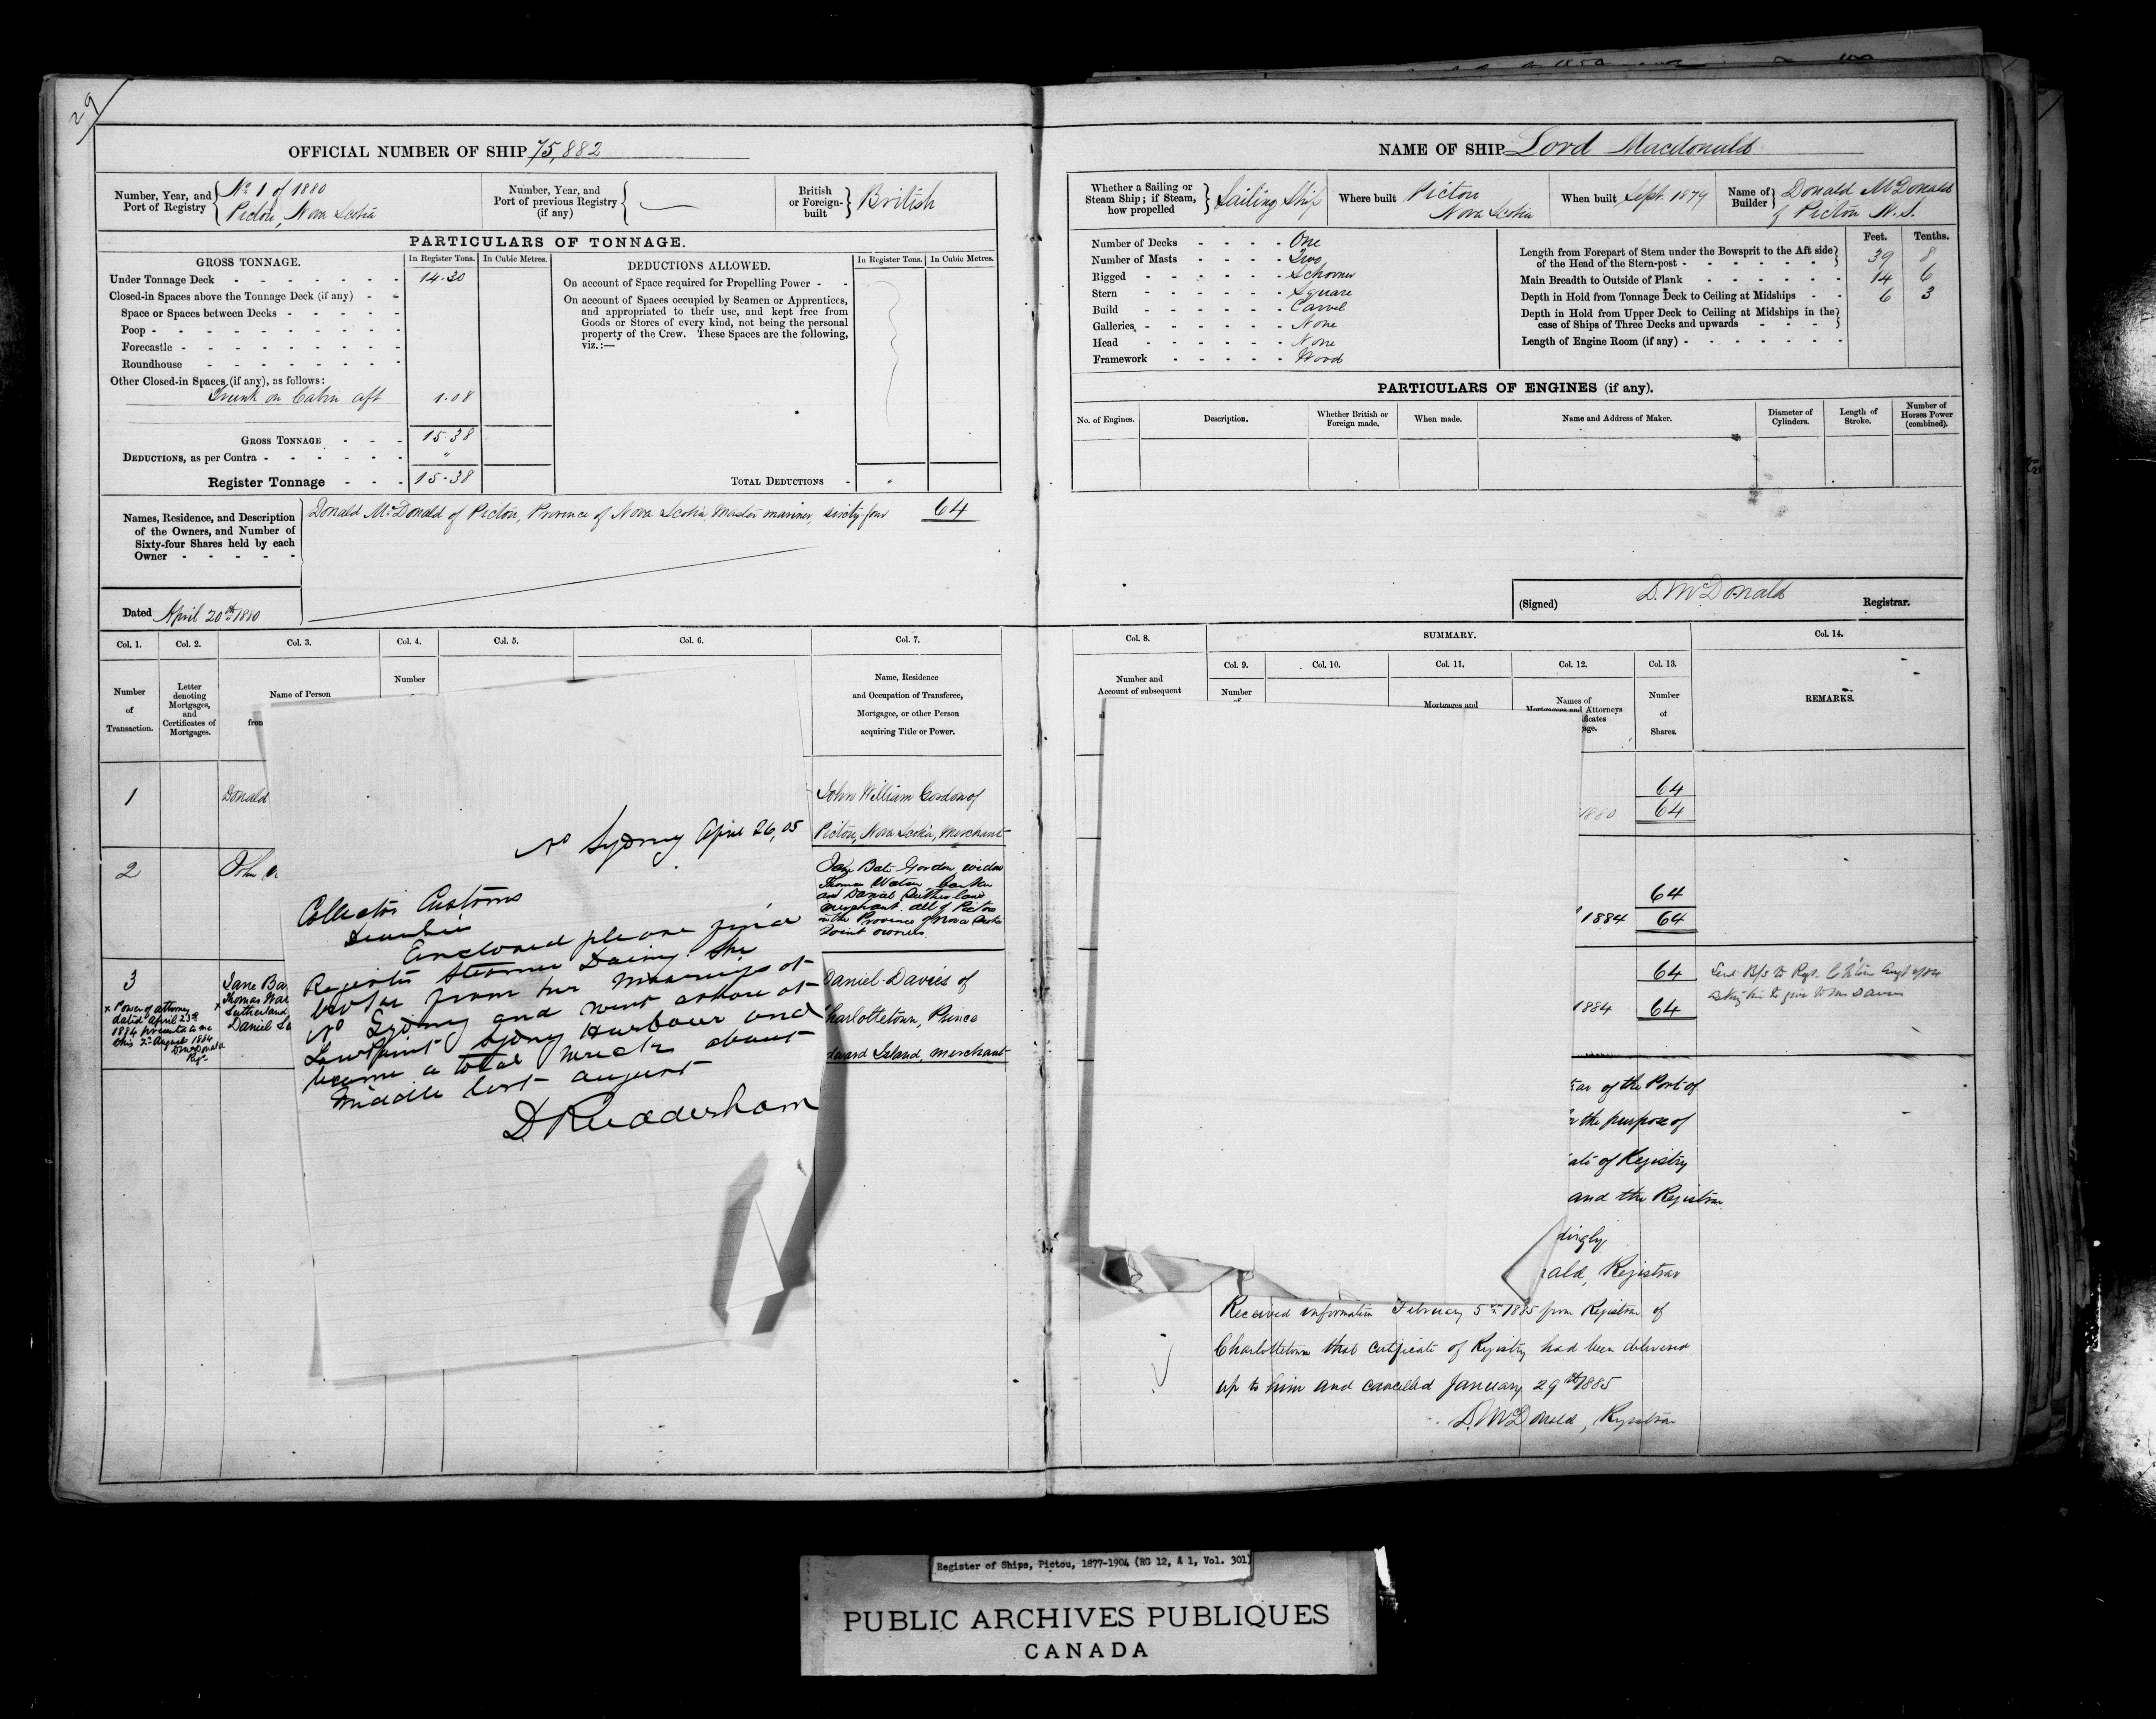 29
OFFICIAL NUMBER OF SHIP 75,882
Number, Year, and Port of Registry
No 1 of 1880
Pictou, Nova Scotia
Number, Year, and Port of previous Registry (if any)
British or Foreign-built
British
PARTICULARS OF TONNAGE.
GROSS TONNAGE.
In Register Tons.
In Cubic Metres.
Under Tonnage Deck 14.30
Closed-in Spaces above the Tonnage Deck (if any)
Space or Spaces between Decks
Poop
Forecastle
Roundhouse
Other Closed-in Spaces (if any), as follows:
Trunk on Cabin aft 1.08
GROSS TONNAGE 15.38
DEDUCTIONS, as per Contra "
Register Tonnage 15.38
DEDUCTIONS ALLOWED.
In Register Tons.
In Cubic Metres.
On account of Space required for Propelling Power
On account of Spaces occupied by Seamen or Apprentices,
and appropriated to their use, and kept free from
Goods or Stores of every kind, not being the personal
property of the Crew. These Spaces are the following,
viz.:—
TOTAL DEDUCTIONS
Names, Residence, and Description
of the Owners, and Number of
Sixty-four Shares held by each
Owner
Donald McDonald of Pictou, Province of Nova Scotia Master mariner, sixty-four 64
Dated April 20th 1880
Col. 1.
Number
of
Transaction.
Col. 2.
Letter
denoting
Mortgages,
and
Certificates of
Mortgages.
Col. 3.
Name of Person
from
Col. 4.
Number
Col. 5.
Col. 6.
Col. 7.
Name, Residence
and Occupation of Transferee,
Mortgagee, or other Person
acquiring Title or Power.
1
Donald
John William Gordon of
Pictou, Nova Scotia, Merchant
2
John
Jane Bate Gordon widow
Thomas Watson Banker
and Daniel Sutherland
merchant. all of Pictou
in the Province of Nova Scotia
Joint owners.
3
x Power of attorney
dated April 23rd
1884 presented to me
this 2nd August 1884
D McDonald
Regr
Jane Ba
Thomas Wat
Sutherland
Daniel
Daniel Davies of
Charlottetown, Prince
dward Island, merchant
No Sydney April 26, 05
Collector Customs
Enclosed please find
Register Steamer Daisy. She
broke from her moorings at
No Sydney and went ashore at
Low Point Sydney Harbour and
became a total wreck about
Middle last august
D Rudderham
NAME OF SHIP Lord Macdonald
Whether a Sailing or
Steam Ship; if Steam,
how propelled
Sailing Ship
Where built
Pictou
Nova Scotia
When built Sept. 1879
Name of Builder
Donald McDonald
of Pictou N.S.
Number of Decks One
Number of Masts Two
Rigged Schooner
Stern Square
Build Carvel
Galleries None
Head None
Framework Wood
Feet. Tenths.
Length from Forepart of Stem under the Bowsprit to the Aft side
of the Head of the Stern-post 39 8
Main Breadth to Outside of Plank 14 6
Depth in Hold from Tonnage Deck to Ceiling at Midships 6 3
Depth in Hold from Upper Deck to Ceiling at Midships in the
case of Ships of Three Decks and upwards
Length of Engine Room (if any)
PARTICULARS OF ENGINES (if any).
No. of Engines.
Description.
Whether British or
Foreign made.
When made.
Name and Address of Maker.
Diameter of
Cylinders.
Length of
Stroke.
Number of
Horses Power
(combined).
(Signed) D. McDonald Registrar.
Col. 8.
Number and
Account of subsequent
SUMMARY.
Col. 9.
Number
of
Col. 10.
Col. 11.
Mortgages and
Col. 12.
Names of
Mortgagees and Attorneys
ficates
ge.
Col. 13.
Number
of
Shares.
Col. 14.
REMARKS.
64
1880 64
64
1884 64
64
1884 64
ar of the Port of
the purpose of
ate of Registry
and the Registrar
dingly
ald, Registrar
Received information February 5th 1885 from Registrar of
Charlottetown that certificate of Registry had been delivered
up to him and cancelled January 29th 1885
D. McDonald, Registrar
Register of Ships, Pictou, 1877-1904 (RG 12, A 1, Vol. 301)
PUBLIC ARCHIVES PUBLIQUES
CANADA